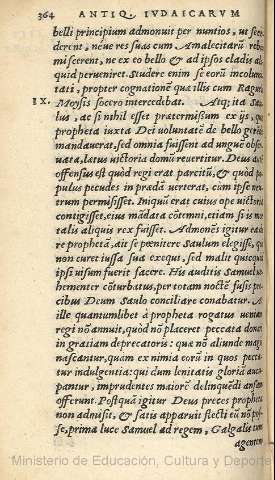 364 ANTIQ. IVDAICARVM
belli principium admonuit per nuntios, ut sece
derent, neue res suas cum Amalecitarũ rebus
miscerent, ne ex eo bello & ad ipsos cladis ali
quid perueniret. Studere enim se eorũ incolumi
tati, propter cognationẽ quæ illis cum Raguele
IX. Moysis socero intercedebat. Atq; ita Sau
lus, ac si nihil esset prætermissum ex ijs, quæ
propheta iuxta Dei voluntatẽ de bello gerẽdo
mandauerat, sed omnia fuissent ad unguẽ obser
uata, lætus victoria domũ reuertitur. Deus autẽ
offensus est quòd regi erat parcitũ, & quòd po
pulus pecudes in prædã uerterat, cum ipse neu
trum permisisset. Iniquũ erat cuius ope uictoria
contigisset, eius mãdata cõtemni, etiam si is mor
talis aliquis rex fuisset. Admonẽs igitur ea de
re prophetã, ait se pœnitere Saulum elegisse, qui
non curet iussa sua exequi, sed malit quicquid
ipsi uisum fuerit facere. His auditis Samuel ue
hementer cõturbatus, per totam noctẽ fusis pre
cibus Deum Saulo conciliare conabatur. At
ille quantumlibet à propheta rogatus ueniam
regi nõ annuit, quòd nõ placeret peccata donari
in gratiam deprecatoris: quæ nõ aliunde magis
nascantur, quam ex nimia eorũ in quos pecca
tur indulgentia: qui dum lenitatis gloriã aucu
pantur, imprudentes maiorẽ delinquẽdi ansam
offerunt. Postquã igitur Deus preces prophetæ
non admisit, & satis apparuit flecti eũ nõ pos
se, prima luce Samuel ad regem, Galgalis tum
agentem
Ministerio de Educación, Cultura y Deporte